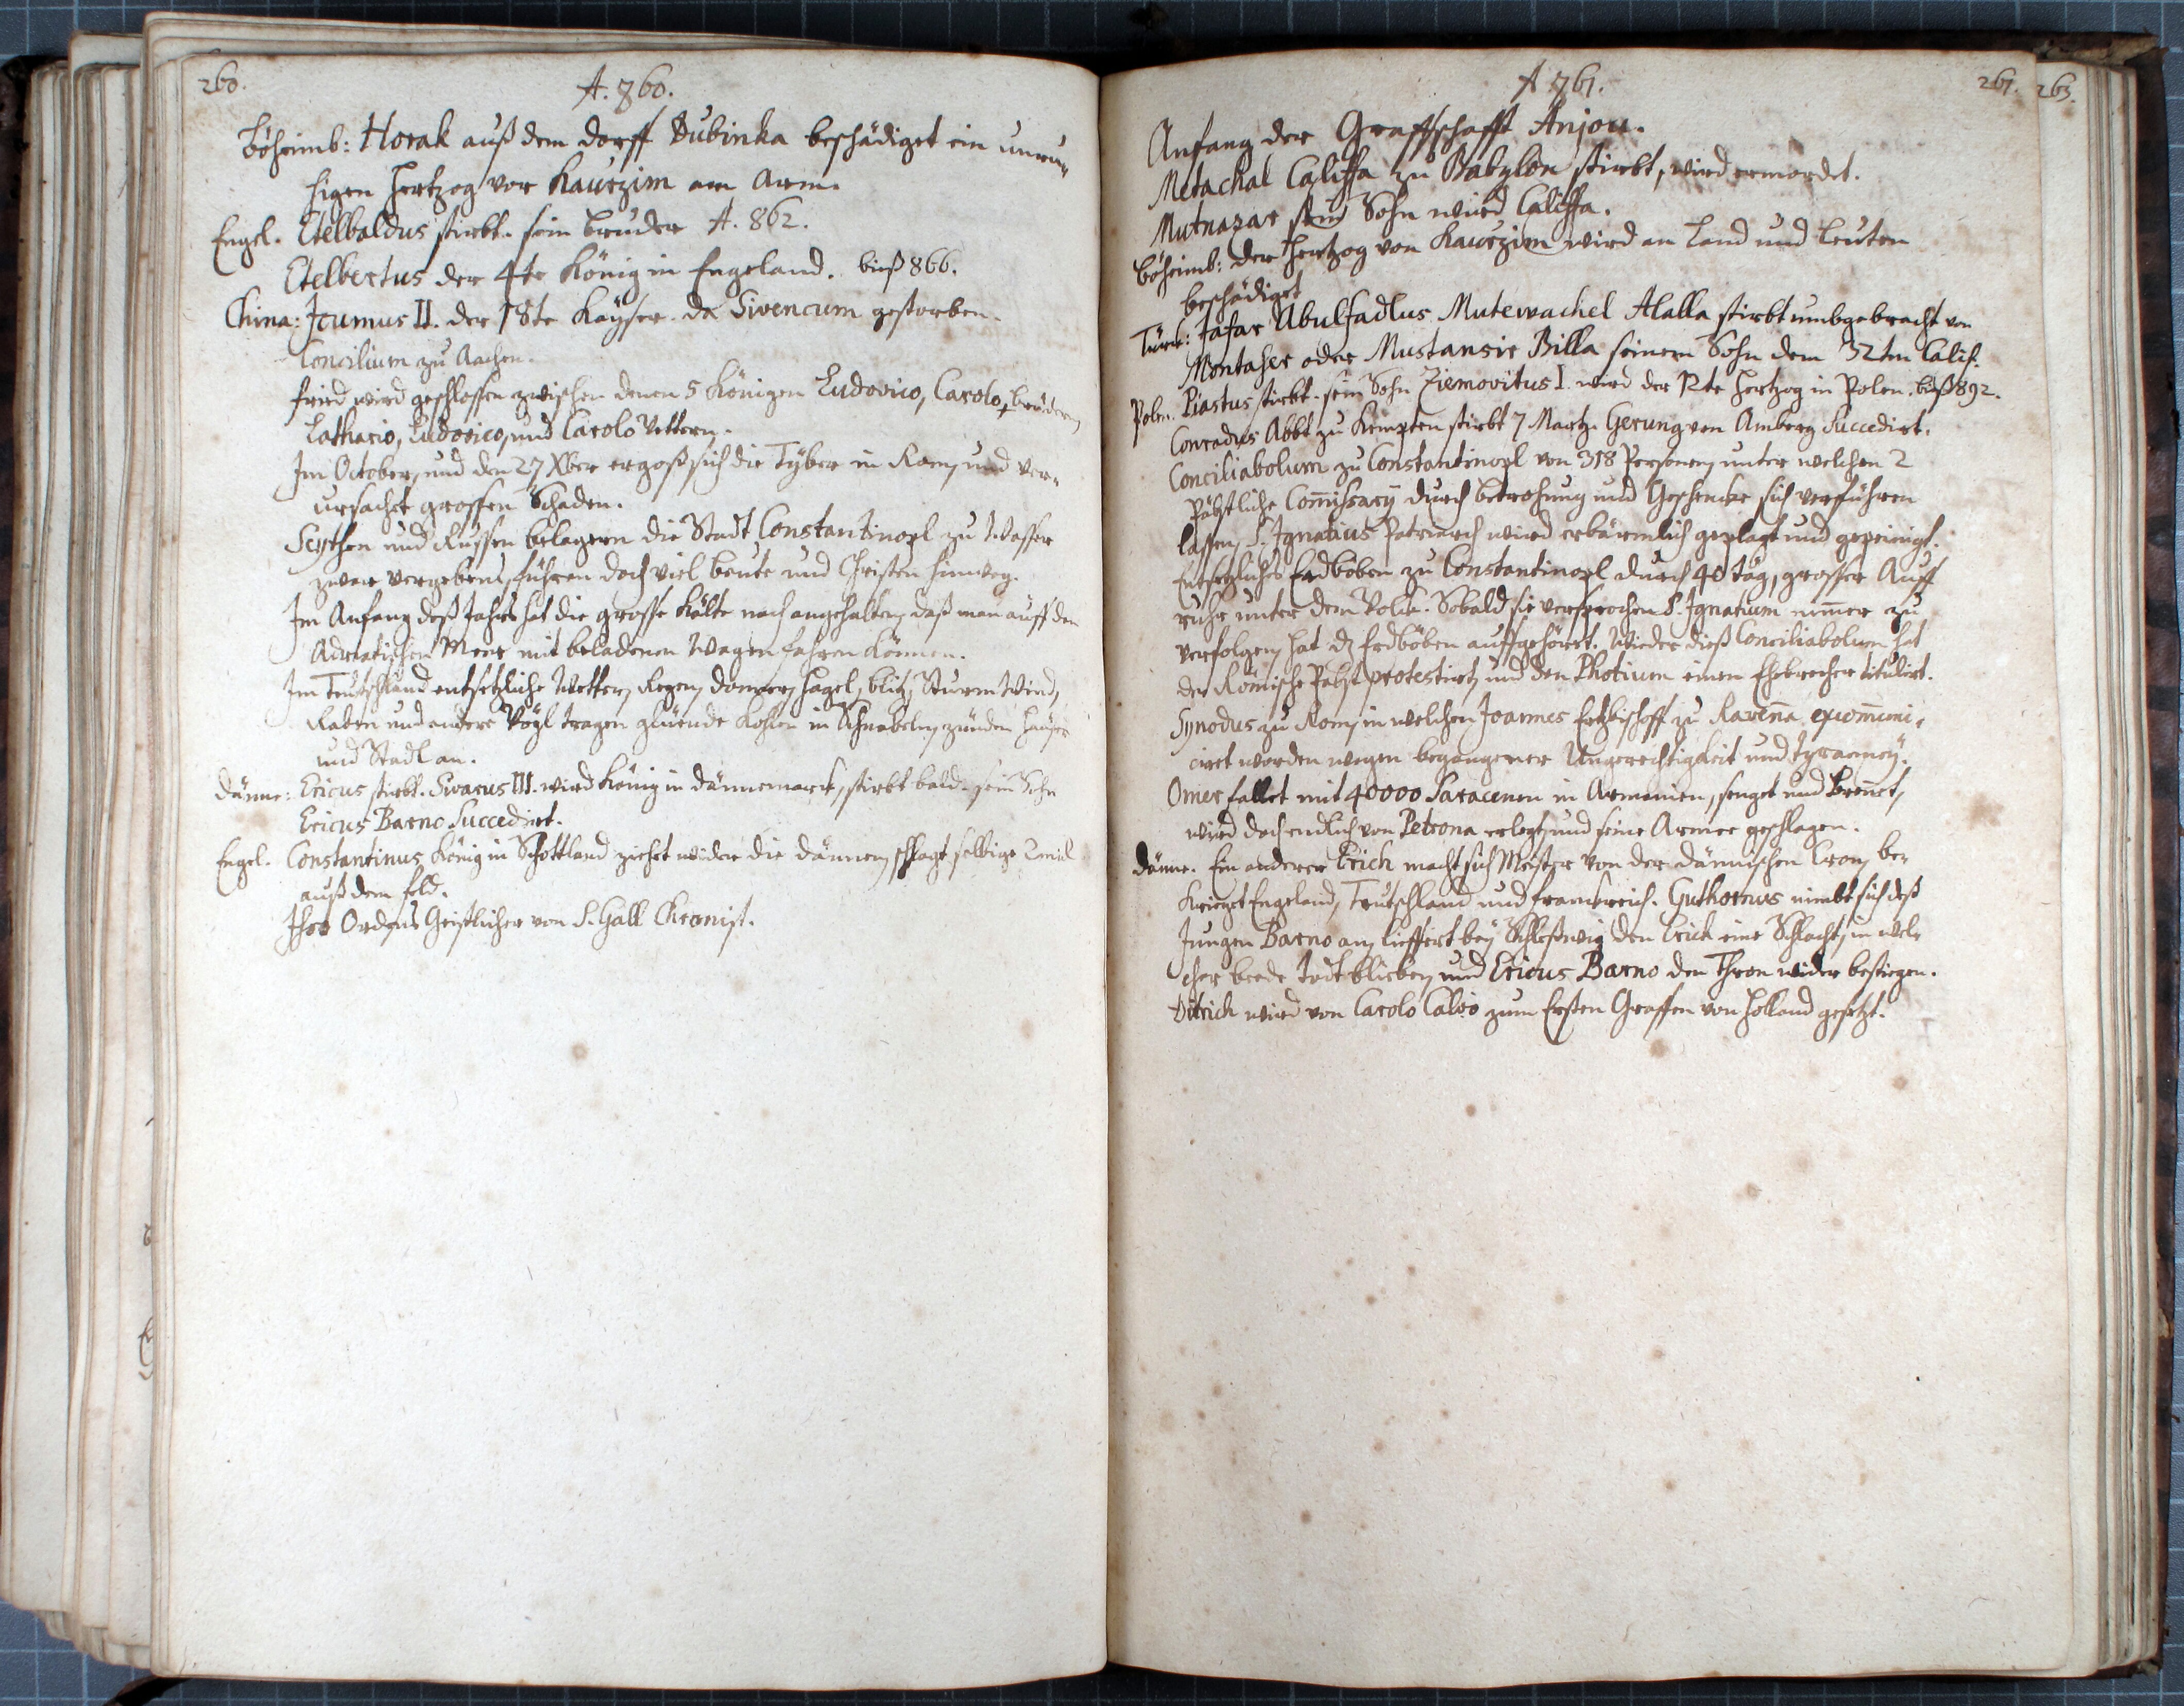 260.
A. 860.
Böheimb: Horak auß dem dorff Dubinka beschädiget ein unru-
higen Hertzog vor Kaurzim am Arm.
Engel. Etelbaldus stirbt. sein bruder A. 862.
Etelbertus der 4te König in Engeland. bieß 866.
China: Icumus II. der 18te Kayser. da Sivencum gestorben.
Concilium zu Aachen.
frid wird geschlossen zwischen denen 5 Königen Ludovico, Carolo, brüdern,
Lothario, Ludovico, und Carolo Vettern.
Im October, und den 27 Xber ergoß sich die Tyber in Rom, und ver-
ursacht grossen Schaden.
Scythen und Russen belagern die Stadt Constantinopl zu Wasser
zwar vergebens, führen doch viel beute und Christen hinweg.
Im Anfang deß Jahrs hat die grosse Kälte noch angehalten, daß man auff dem
Adriatischen Meer mit beladenen Wagen fahren können.
Im Teutschland entsetzliche Wetter, Regen, donner, Hagel, blitz, Sturm Wind,
Raben und andere Vögl tragen gluende Kohlen in Schnabeln, zünden Häuser
und Stadl an.
Dänne: Ericus stirbt. Swarus III. wird König in dännemarck, stirbt bald. sein Sohn
Ericus Barno Succedirt.
Engel. Constantinus König in Schottland ziehet wider die dännen, schlagt selbige 2mal
auß dem feld.
Ordens Geistlicher von S. Gall Chronist.
A 861.
261.
263.
Anfang der Graffschafft Anjou.
Metachal Califfa zu Babylon stirbt, wird ermordet.
Mutnazar sein Sohn wird Califfa.
Böheimb: der Hertzog von Kaurzim wird an Land und Leuten
beschädiget
Türck: Jafar Abulfadlus Mutewachel Alalla stirbt umbgebracht von
Montaser oder Mustansir Billa seinem Sohn dem 32ten Calif.
Polen. Piastus stirbt. sein Sohn Ziemovitus I. wird der 12te Hertzog in Polen. bieß 892.
Conradus Abbt zu Kempten stirbt 7 Martz. Gerung von Amberg Succedirt.
Conciliabolum zu Constantinopl von 318 Personen, unter welchen 2
Päbstliche Com̅issarÿ durch betrohung und Geschencke sich verführen
lassen, S. Ignatius Patriarch wird erbärmlich geplagt und gepeinigt.
Entsetzliches Erdböben zu Constantinopl durch 40 täg, grosser Auff
ruhr unter dem Volck. Sobald sie versprochen S. Ignatium nim̅er zu
verfolgen, hat dz Erdböben auffgehöret. Wieder dieß Conciliabolum hat
der Römische Pabst protestirt, und den Photium einen Ehebrecher titulirt.
Synodus zu Rom, in welchen Joannes Ertzbischoff zu Raven̅a excom̅uni-
cirt worden wegen begangener Ungerechtigkeit und tyranney.
Omer fallet mit 40000 Saracenen in Armenien, senget und bren̅et,
wird doch endlich von Petrona erlegt, und seine Armee geschlagen.
Dänne. Ein anderer Erich macht sich Meister von der dännischen Cron, be-
krieget Engeland, Teutschland und franckreich. Guthornus nimbt sich deß
Jungen Barno an, lieffert bey Schleßwig den Erich eine Schlacht, in wel-
cher beede todt blieben, und Ericus Barno den Thron wider bestiegen.
Ditrich wird von Carolo Calvo zum Ersten Graffen von Holland gesetzt.